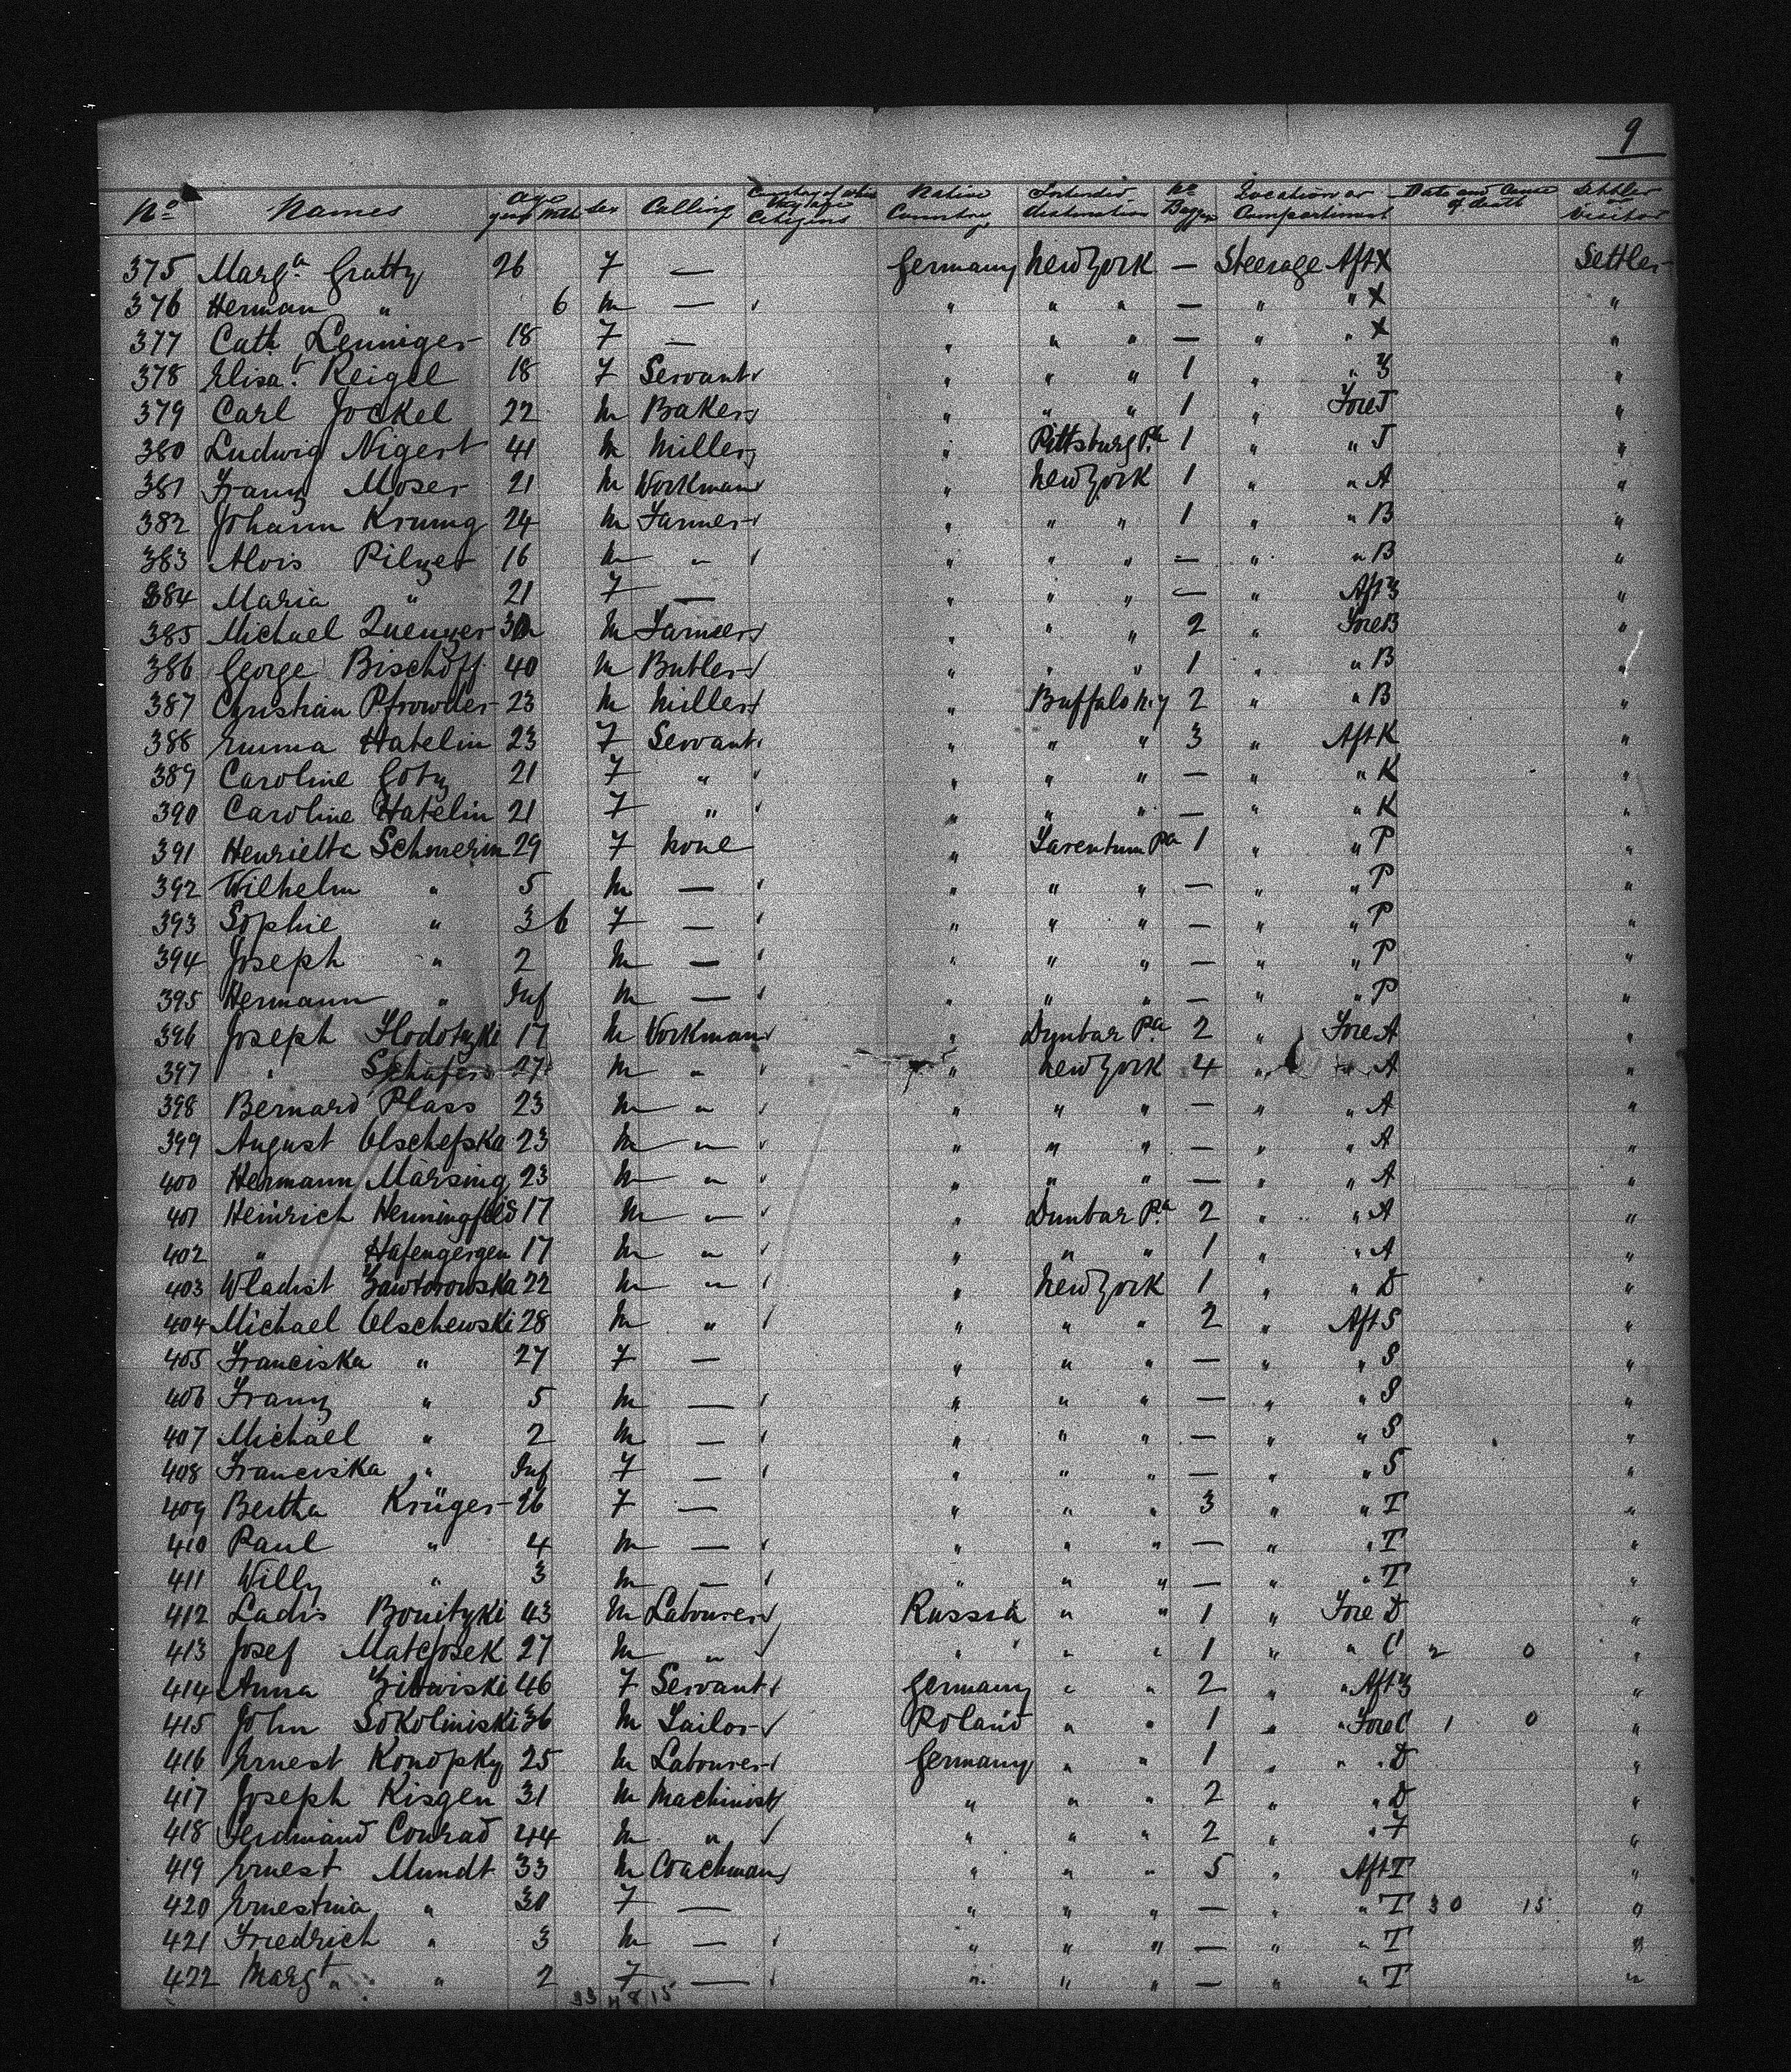 9
No Names Age years Mth Sex Calling Country of which they are Citizens Native Country Intended destination No Baggage Location or Compartment Date and Cause of death Settler or Visitor
375 Marga. Gratty 26 F — Germany New York — Steerage Aft X Settler
376 Herman " 6 m — " " " — " " X "
377 Cath Lenniger 18 F — " " " — " " X "
378 Elisat. Reigel 18 F Servant " " " 1 " " Z "
379 Carl Jockel 22 m Baker " " " 1 " Fore J "
380 Ludwig Nigert 41 m Miller " Pittsburg Pa 1 " " J "
381 Franz Moser 21 m Workman " New York 1 " " A "
382 Johann Krumg 24 m Farmer " " " 1 " " B "
383 Alois Pilzer 16 m " " " " — " " B "
384 Maria " 21 F — " " " — " Aft Z "
385 Michael m Farmer " " " 2 " Fore B "
386 George Bischoff 40 m Butler " " " 1 " " B "
387 Christian 23 m Miller " Buffalo N.Y 2 " " B "
388 Emma Hatelin 23 F Servant " " " 3 " Aft K "
389 Caroline Gotz 21 F " " " " — " " K "
390 Caroline Hatelin 21 F " " " " — " " K "
391 Henrietta Schmerin 29 F None " Tarentum Pa 1 " " P "
392 Wilhelm " 5 m — " " " — " " P "
393 Sophie " 3 6 F — " " " — " " P "
394 Joseph " 2 m — " " " — " " P "
395 Hermann " Inf m — " " " — " " P "
396 Joseph 17 m Workman " Dunbar Pa. 2 " Fore A "
397 " Schäfers 27 m " " New York 4 " " A "
398 Bernard Plass 23 m " " " " — " " A "
399 August Olschefska 23 m " " " " — " " A "
400 Hermann Märsing 23 m " " " " — " " A "
401 Heinrich Henningfeld 17 m " " Dunbar Pa. 2 " " A "
402 " Hafengergen 17 m " " " " 1 " " A "
403 Wladist Zawtorowska 22 m " " New York 1 " " D "
404 Michael Olschewski 28 m " " " " 2 " Aft S "
405 Franciska " 27 F — " " " — " " S "
406 Franz " 5 m — " " " — " " S "
407 Michael " 2 m — " " " — " " S "
408 Franciska " Inf F — " " " — " " S "
409 Bertha Krüger 26 F — " " " 3 " " T "
410 Paul " 4 m — " " " — " " T "
411 Willy " 3 m — " " " — " " T "
412 Ladis Bonityki 43 m Labourer Russia " " 1 " Fore D "
413 Josef Matejosek 27 m " " " " 1 " " C 2 0 "
414 Anna 46 F Servant Germany " " 2 " " Aft Z "
415 John Sokoliniski 36 m Tailor Poland " " 1 " " Fore C 1 0 "
416 Ernest Konopky 25 m Labourer Germany " " 1 " " D "
417 Joseph Kisgen 31 m Machinist " " " 2 " " D "
418 Ferdinand Conrad 44 m " " " " 2 " " F "
419 Ernest Mundt 33 m Coachman " " " 5 " Aft T "
420 Ernestina " 30 F — " " " — " " T 30 15 "
421 Friedrich " 3 m — " " " — " " T "
422 Margt " 2 F — " " " — " " T "